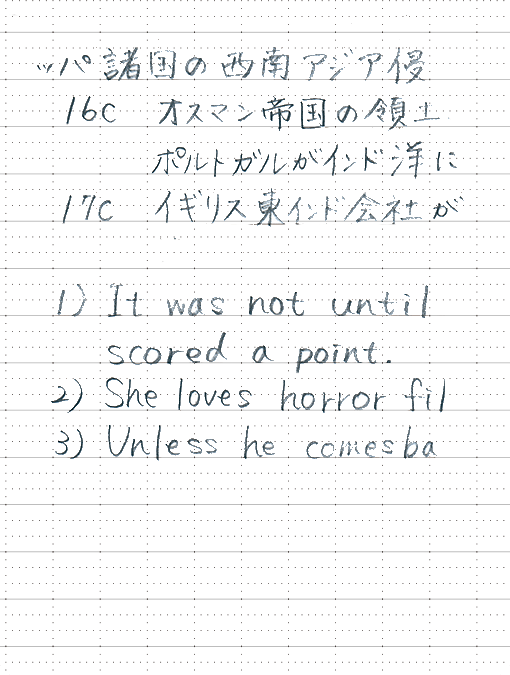 ッパ諸国の西南アジア侵
16C オスマン帝国の領土
ポルトガルがインド洋に
17C イギリス東インド会社が
1) It was not until
scored a point.
2) She loves horror fil
3) Unless he comes ba